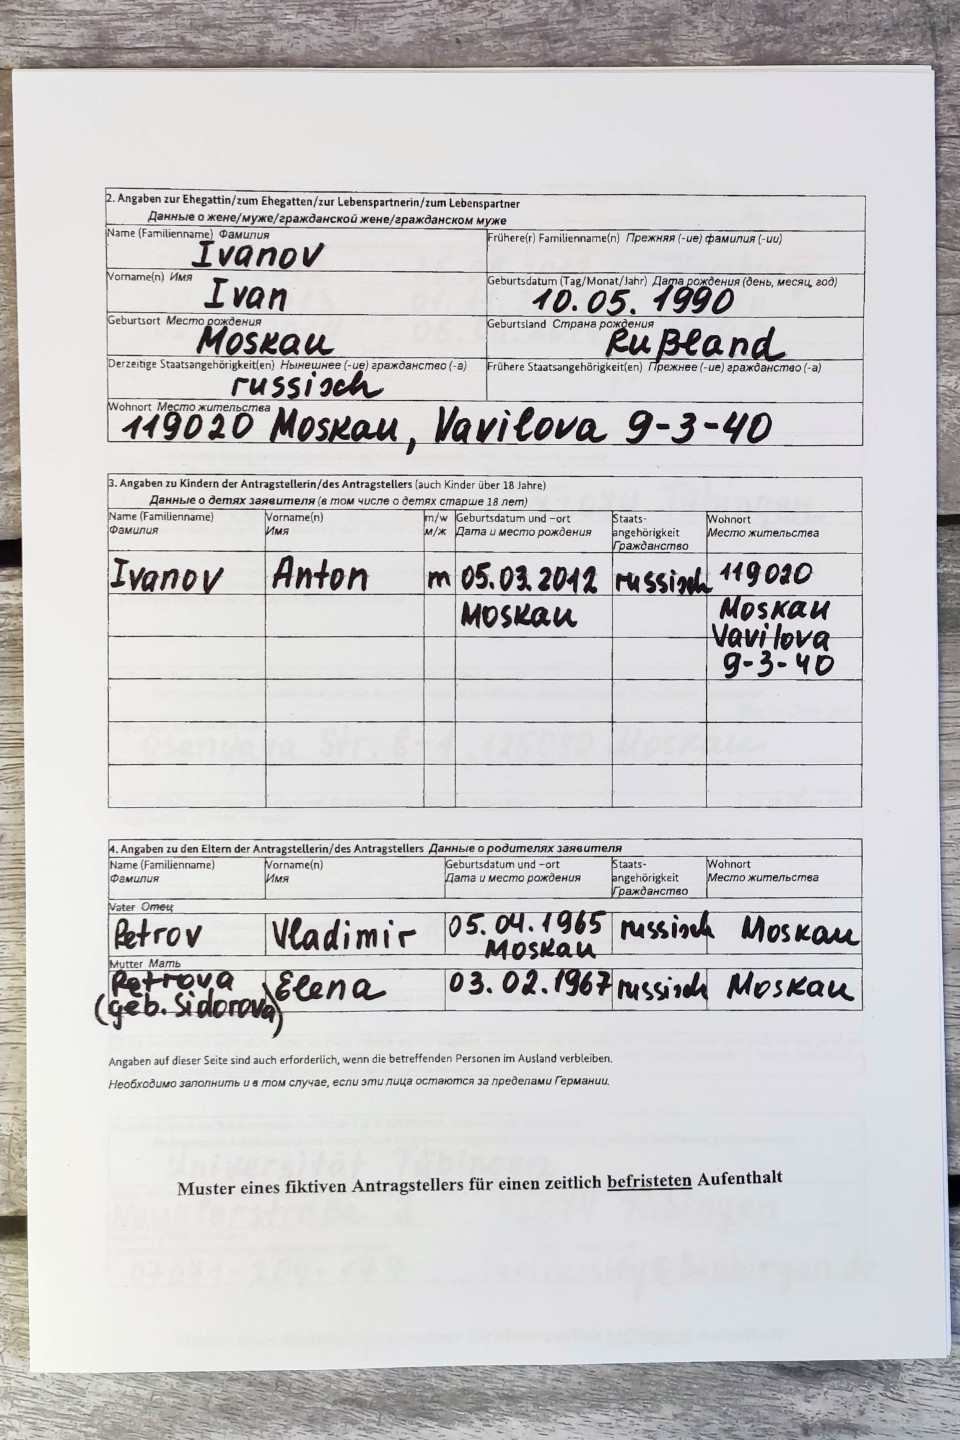 2. Angaben zur Ehegattin/zum Ehegatten/zur Lebenspartnerin/zum Lebenspartner
Данные о жене/муже/гражданской жене/гражданском муже
Name (Familienname) Фамилия
Ivanov
Frühere(r) Familienname(n) Прежняя (-ие) фамилия (-ии)
Vorname(n) Имя
Ivan
Geburtsdatum (Tag/Monat/Jahr) Дата рождения (день, месяц, год)
10.05.1990
Geburtsort Место рождения
Moskau
Geburtsland Страна рождения
Rußland
Derzeitige Staatsangehörigkeit(en) Нынешнее (-ие) гражданство (-а)
russisch
Frühere Staatsangehörigkeit(en) Прежнее (-ие) гражданство (-а)
Wohnort Место жительства
119020 Moskau, Vavilova 9-3-40
3. Angaben zu Kindern der Antragstellerin/des Antragstellers (auch Kinder über 18 Jahre)
Данные о детях заявителя (в том числе о детях старше 18 лет)
Name (Familienname)
Фамилия
Vorname(n)
Имя
m/w
м/ж
Geburtsdatum und –ort
Дата и место рождения
Staats-
angehörigkeit
Гражданство
Wohnort
Место жительства
Ivanov Anton m 05.03.2012 russisch 119020
Moskau Moskau
Vavilova
9-3-40
4. Angaben zu den Eltern der Antragstellerin/des Antragstellers Данные о родителях заявителя
Name (Familienname)
Фамилия
Vorname(n)
Имя
Geburtsdatum und –ort
Дата и место рождения
Staats-
angehörigkeit
Гражданство
Wohnort
Место жительства
Vater Отец
Petrov Vladimir 05.04.1965 russisch Moskau
Moskau
Mutter Мать
Petrova Elena 03.02.1967 russisch Moskau
(geb. Sidorova)
Angaben auf dieser Seite sind auch erforderlich, wenn die betreffenden Personen im Ausland verbleiben.
Необходимо заполнить и в том случае, если эти лица остаются за пределами Германии.
Muster eines fiktiven Antragstellers für einen zeitlich befristeten Aufenthalt